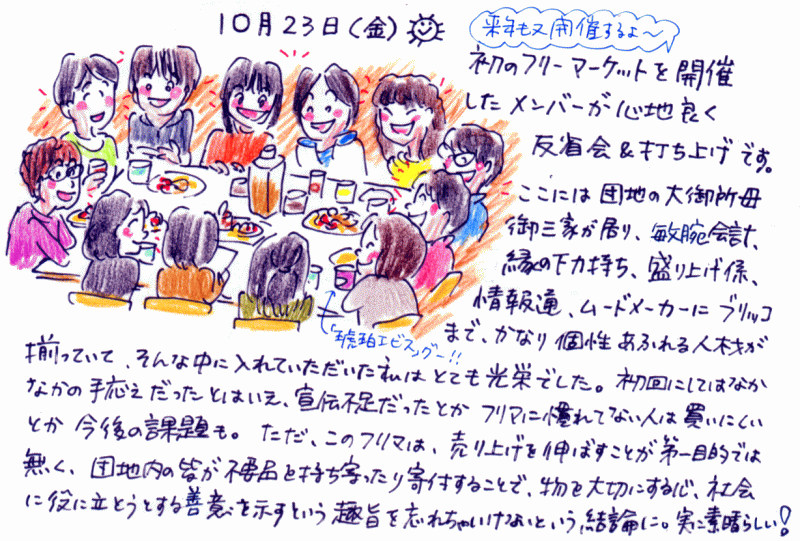 10月23日(金)
来年も又開催するよ〜
初のフリーマーケットを開催
したメンバーが心地良く
反省会&打ち上げです。
ここには団地の大御所母
御三家が居り、敏腕会計、
縁の下力持ち、盛り上げ係、
情報通、ムードメーカーにブリッコ
まで、かなり個性あふれる人材が
琥珀エビスグー!!
揃っていて、そんな中に入れていただいた私はとても光栄でした。初回にしてはなか
なかの手応えだったとはいえ、宣伝不足だったとかフリマに慣れてない人は買いにくい
とか今後の課題も。ただ、このフリマは、売り上げを伸ばすことが第一目的では
無く、団地内の皆が不要品を持ち寄ったり寄付することで、物を大切にする心、社会
に役に立とうとする善意を示すという趣旨を忘れちゃいけないという結論に。実に素晴らしい!